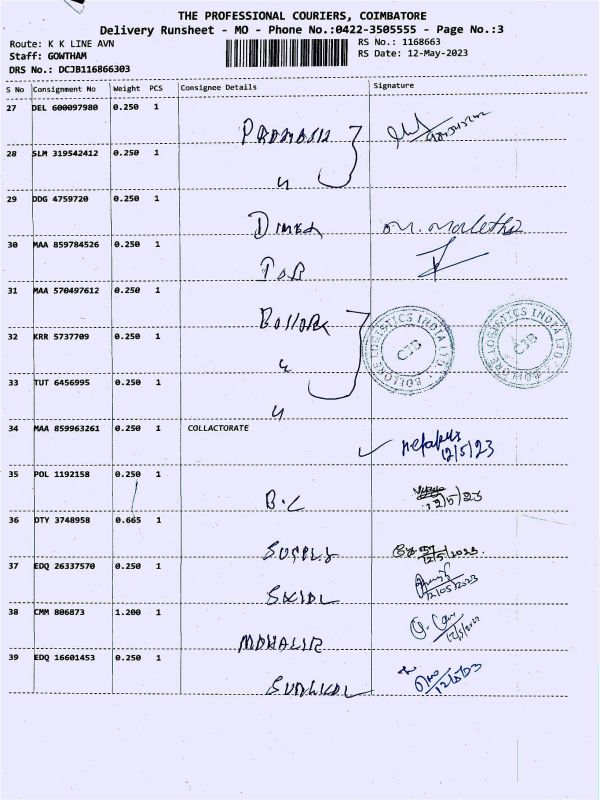 THE PROFESSIONAL COURIERS, COIMBATORE
Delivery Runsheet - MO - Phone No.:0422-3505555 - Page No.:3
Route: K K LINE AVN
RS No.: 1168663
Staff: GOWTHAM
RS Date: 12-May-2023
DRS No.: DCJB116866303
S No Consignment No Weight PCS Consignee Details Signature
27 DEL 600097980 0.250 1
28 SLM 319542412 0.250 1
29 DDG 4759720 0.250 1
30 MAA 859784526 0.250 1
31 MAA 570497612 0.250 1
Bollore
BOLLORE LOGISTICS INDIA LTD. CJB
BOLLORE LOGISTICS INDIA LTD. CJB
32 KRR 5737709 0.250 1
33 TUT 6456995 0.250 1
34 MAA 859963261 0.250 1 COLLACTORATE
12/5/23
35 POL 1192158 0.250 1
B.C 12/5/23
36 DTY 3748958 0.665 1
12/5/2023.
37 EDQ 26337570 0.250 1
12/05/2023
38 CMM 806873 1.200 1
12/5/2023
39 EDQ 16601453 0.250 1